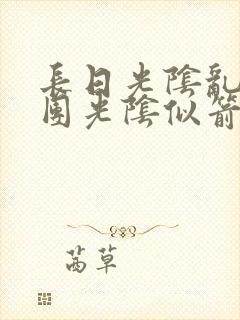 長日光陰亂
團光陰似箭
茜草